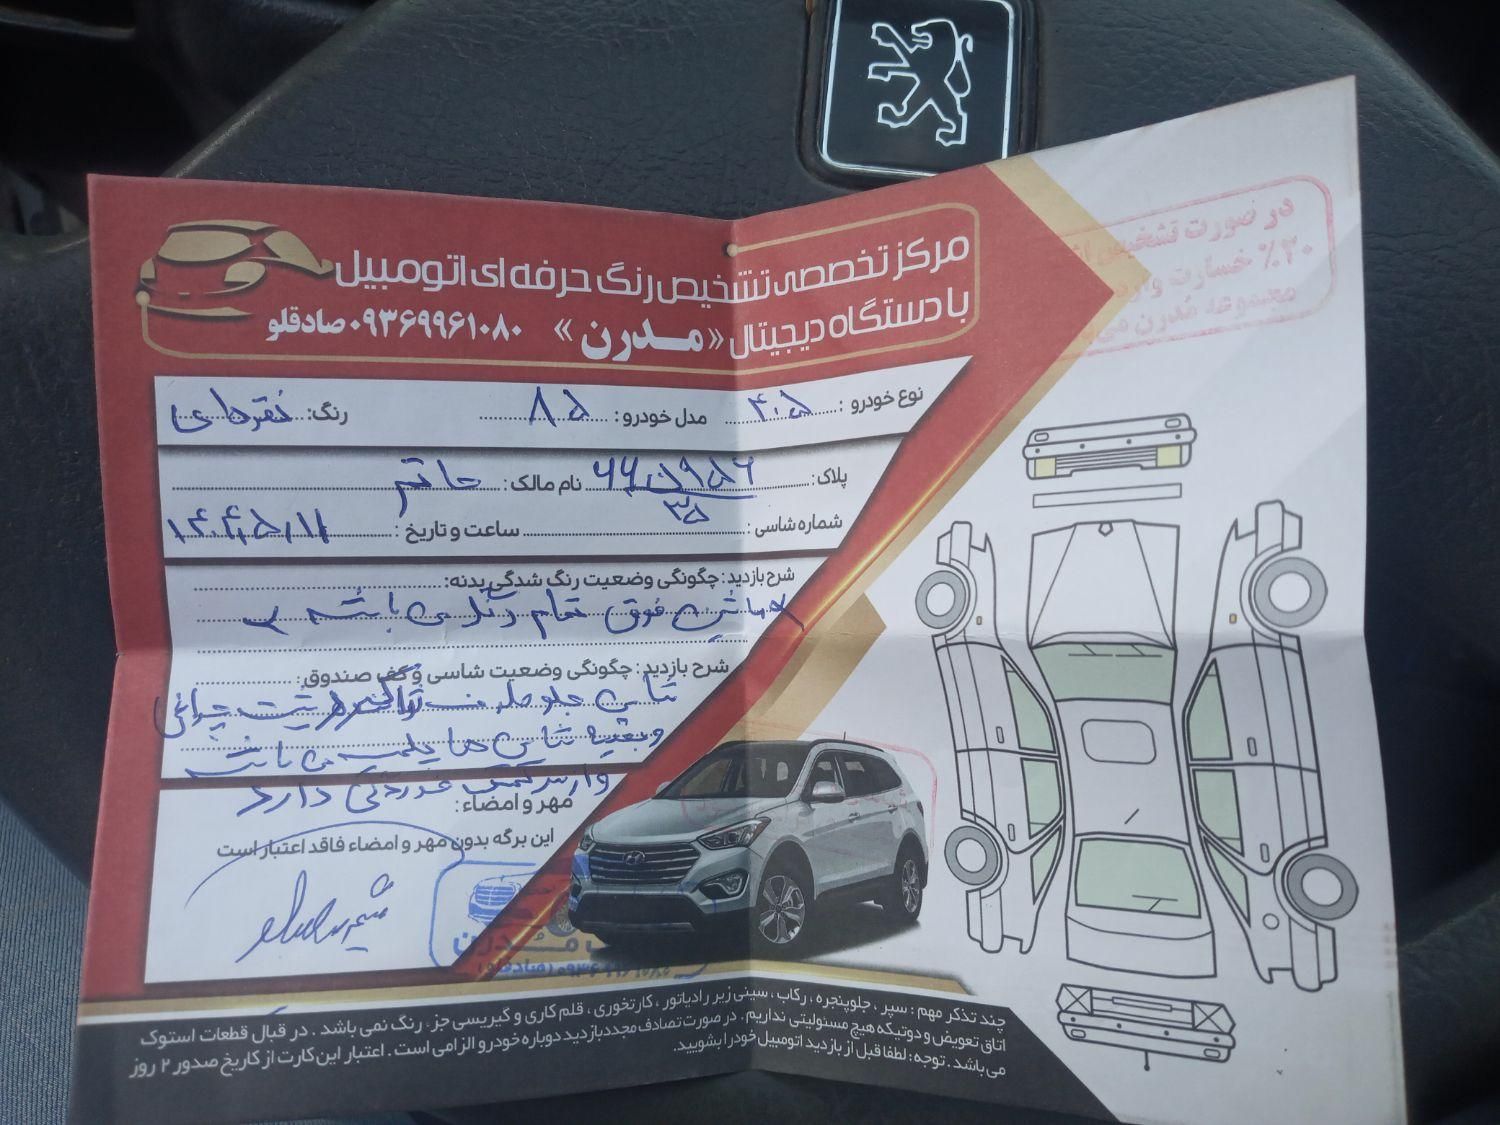 مرکز تخصصی تشخیص رنگ حرفه ای اتومبیل
با دستگاه دیجیتال «مدرن» ۰۹۳۶۹۹۶۱۰۸۰ صادقلو
در صورت تشخیص
۲۰٪ خسارت
مجموعه مُدرن
نوع خودرو : ۴۰۵ مدل خودرو : ۸۵ رنگ: نقره‌ای
پلاک: نام مالک: حاتم
شماره شاسی : ساعت و تاریخ :
شرح بازدید : چگونگی وضعیت رنگ شدگی بدنه:
ماشین فوق تمام رنگ می باشد
شرح بازدید : چگونگی وضعیت شاسی و کف صندوق:
شاسی جلو طرف
و بقیه شاسی ها پلمپ می باشد
دارد
مهر و امضاء:
این برگه بدون مهر و امضاء فاقد اعتبار است
مُدرن
چند تذکر مهم : سپر ، جلوپنجره ، رکاب ، سینی زیر رادیاتور ، کارتخوری ، قلم کاری و گیریسی جزء رنگ نمی باشد . در قبال قطعات استوک
اتاق تعویض و دوتیکه هیچ مسئولیتی نداریم . در صورت تصادف مجدد بازدید دوباره خودرو الزامی است . اعتبار این کارت از تاریخ صدور ۲ روز
می باشد . توجه : لطفا قبل از بازدید اتومبیل خود را بشویید.